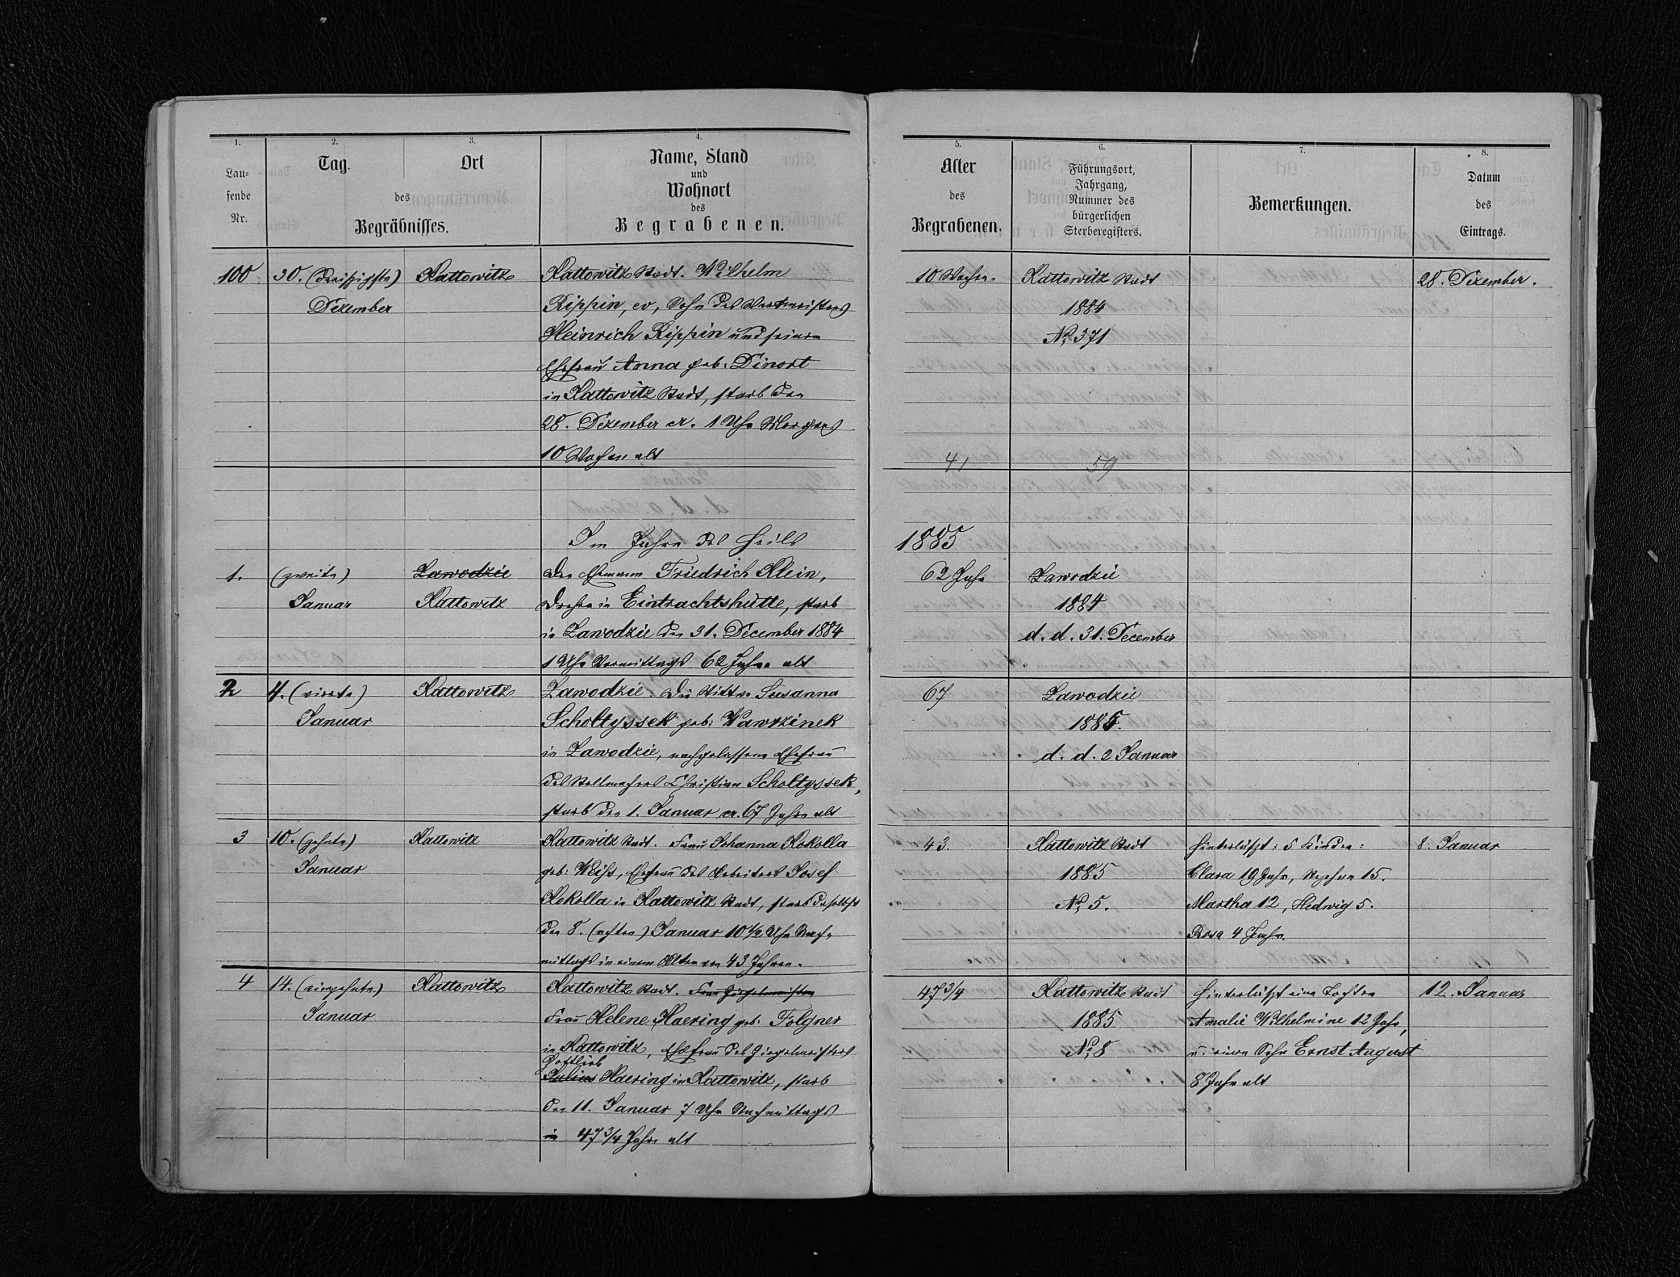 1.
2.
3.
4.
Lau-
fende
Nr.
Tag.
Ort
des
Begräbnisses.
Name, Stand
und
Wohnort
des
Begrabenen.
5.
6.
7.
8.
Alter
des
Begrabenen.
Führungsort,
Jahrgang,
Nummer des
bürgerlichen
Sterberegisters.
Bemerkungen.
Datum
des
Eintrags.
100. 30. (Dreißigste) Kattowitz
Dezember
Kattowitz Stadt. Wilhelm
Rippin, ev, Sohn des
Heinrich Rippin und seiner
Ehefrau Anna geb. Dinort
in Kattowitz Stadt, starb den
28. Dezember cr. 1 Uhr Morgens
10 Wochen alt
10 Wochen.
Kattowitz Stadt
1884
No. 371
28. Dezember.
41
59
Im Jahre des Heils 1885
1. (zweite) Zawodzie
Januar Kattowitz
Der Ehemann Friedrich Klein,
Dreher in Eintrachtshütte, starb
in Zawodzie den 31. December 1884
1 Uhr Vormittags 62 Jahre alt
62 Jahr
Zawodzie
1884
d. d. 31. December
2 4. (vierte) Kattowitz
Januar
Zawodzie. Die Wittwe Susanna
Scholtyssek geb. Wawrzinek
in Zawodzie, nachgelassene Ehefrau
des Christian Scholtyssek,
starb den 1. Januar cr. 67 Jahre alt
67
Zawodzie
1885.
d. d. 2 Januar
3 10. (zehnte) Kattowitz
Januar
Kattowitz Stadt. Frau Johanna Kokolla
geb. Weiß, Ehefrau des Arbeiters Josef
Kokolla in Kattowitz Stadt, starb daselbst
den 8. (achten) Januar 10 1/2 Uhr Nach-
mittags in einem Alter von 43 Jahren.
43.
Kattowitz Stadt
1885
No. 5.
hinterläßt: 5 Kinder:
Clara 19 Jahr, 15.
Martha 12, Hedwig 5.
Rosa 4 Jahr.
8. Januar
4 14. (vierzehnte) Kattowitz
Januar
Kattowitz Stadt. Frau Ziegelmeister
Frau Helene Haering geb. Folgner
in Kattowitz, Ehefrau des Ziegelmeisters
Gottlieb
Julius Haering in Kattowitz, starb
den 11. Januar 7 Uhr Nachmittags
in 47 3/4 Jahre alt
47 3/4
Kattowitz Stadt
1885
No. 8
hinterläßt eine Tochter
Amalie Wilhelmine 12 Jahr,
u. einen Sohn Ernst August
8 Jahr alt
12. Januar